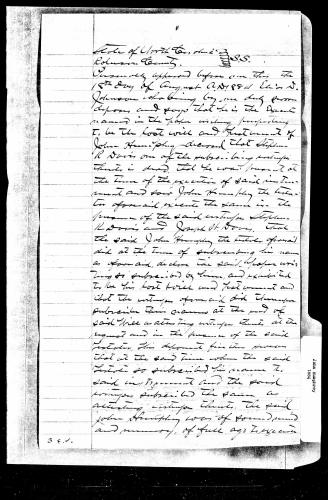 State of North Carolina
Robeson County } S.S.
Personally appeared before me this the
15th Day of August A.D 18
Johnson who being by me duly sworn
deposes and says that he is the
named in the paper writing purporting
to be the last will and testament of
John Humphrey deceased that Stephen
R Davis one of the subscribing witness
thereto is dead that he was present at
the time of the execution of said instru
ment and saw John Humphrey the testa
tor aforesaid execute the same in the
presence of the said witness Stephen
R Davis and Joseph H Davis. That
the said John Humphrey the testator aforesaid
did at the time of subscribing his name
as aforesaid declare the said paper wri
ting so subscribed by him and exhibited
to be his last will and testament and
that the witness aforesaid did thereupon
subscribe their names at the end of
said Will as attesting witness thereto at the
request and in the presence of the said
testator. This deponent further
that at the said time when the said
testator so subscribed his name to
said instrument and the said
witness subscribed the same as
attesting witness thereto, the said
John Humphrey was of sound mind
and memory, of full age to execute